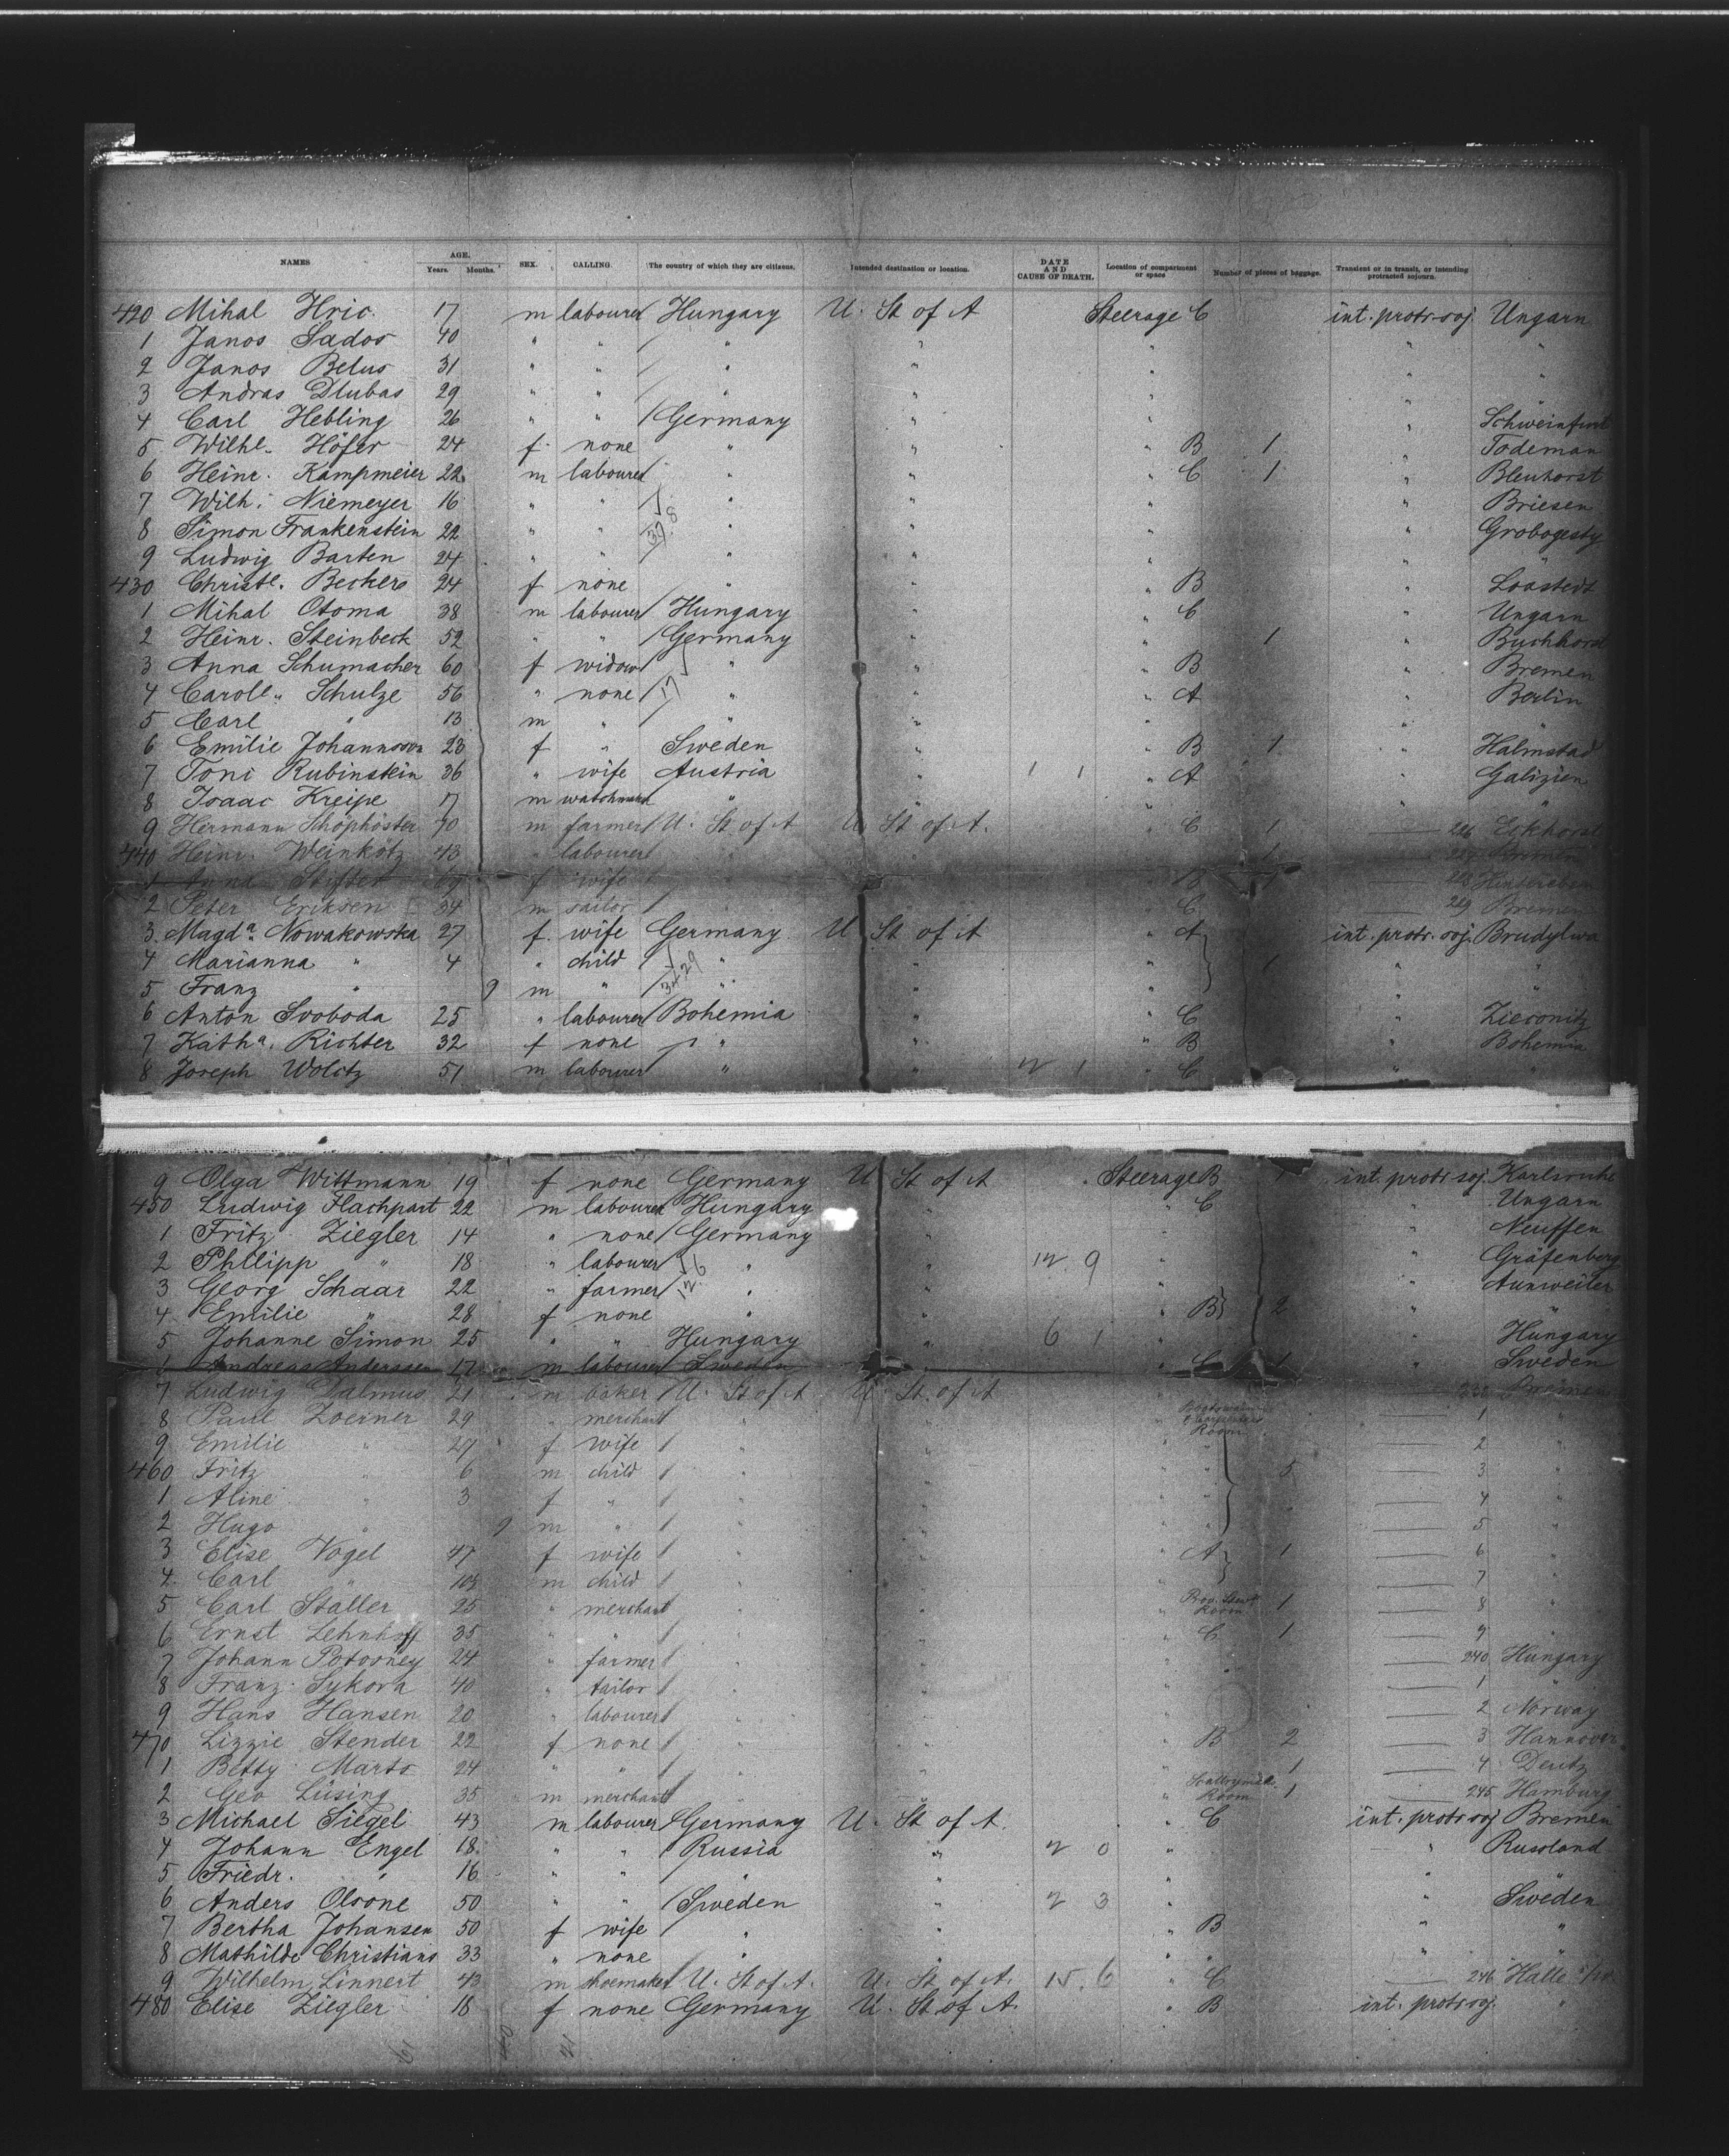 NAMES AGE. Years. Months. SEX. CALLING. The country of which they are citizens. Intended destination or location. DATE AND CAUSE OF DEATH. Location of compartment or space Number of pieces of baggage. Transient or in transit, or intending protracted sojourn.
420 Mihal Hric 17 m labourer Hungary U. St of A Steerage C int. protr. soj Ungarn
1 Janos Sados 40 " " " " " " "
2 Janos Belus 31 " " " " " " "
3 Andras Dlubas 29 " " " " " " "
4 Carl Hebling 26 " " Germany " " " Schweinfurt
5 Wilhe. Höfer 24 f none " " " B 1 " Todeman
6 Heinr. Kampmeier 22 m labourer " " " C 1 " Blenhorst
7 Wilh. Niemeyer 16 " " " " " " Briesen
8 Simon Frankenstein 22 " " 37.8 " " " " Grobogesty
9 Ludwig Barten 24 " " " " " " "
430 Christe. Beckers 24 f none " " " B " Loxstedt
1 Mihal Otoma 38 m labourer Hungary " " C " Ungarn
2 Heinr. Steinbeck 52 " " Germany " " 1 " Buchhorst
3 Anna Schumacher 60 f widow " " " B " Bremen
4 Carole. Schulze 56 " none 17 " " " A " Berlin
5 Carl " 13 m " " " " " "
6 Emilie Johannson 23 f " Sweden " " B 1 " Halmstad
7 Toni Rubinstein 36 " wife Austria " 1 1 " A " Galizien
8 Isaac Kreipe 17 m watchmaker " " " " "
9 Hermann Schöphöster 70 m farmer U. St of A U. St of A. " C 1 226 Eckhorst
440 Heinr. Weinkötz 43 " labourer " " 1 227 Bremen
1 Anna Stifter 69 f wife " B 1 228
2 Peter Eriksen 34 m sailor " C 229 Bremen
3 Magda. Nowakowska 27 f. wife Germany U. St of A " A int. protr. soj. Brudylwa
4 Marianna " 4 " child " " " 1 " "
5 Franz " 9 m " 34.29 " " " " "
6 Anton Svoboda 25 " labourer Bohemia " " C " Zieconitz
7 Katha. Richter 32 f none " " " B " Bohemia
8 Joseph Wolitz 51 m labourer " " 12 1 " C " "
9 Olga Wittmann 19 f none Germany U. St of A Steerage B 1 int. protr soj. Karlsruhe
450 Ludwig Flachpart 22 m labourer Hungary " C " Ungarn
1 Fritz Ziegler 14 " none Germany " " " Neuffen
2 Philipp " 18 " labourer " " 12 9 " " Gräfenberg
3 Georg Schaar 22 " farmer 12.6 " " " " Annweiler
4 Emilie " 28 f none " " " B 2 " "
5 Johanne Simon 25 " " Hungary " 6 1 " " Hungary
6 Andreas Anderssen 17 m labourer Sweden " " C 1 " Sweden
7 Ludwig Dalmus 21 m baker U. St of A U. St. of A 230 Bremen
8 Paul Zoerner 29 " merchant " " Boatswain & Carpenters Room 1 "
9 Emilie " 27 f wife " " " " 2 "
460 Fritz " 6 m child " " " " 5 3 "
1 Aline " 3 f " " " " " 4 "
2 Hugo " 9 m " " " " " 5 "
3 Elise Vogel 47 f wife " " " A 1 6 "
4 Carl " 10 m child " " " 7 "
5 Carl Staller 25 " merchant " " " Prov. Stew. Room 1 8 "
6 Ernst Lehnhoff 35 " " " " " C 1 9 "
7 Johann Potosney 24 " farmer " " " 240 Hungary
8 Franz Sykora 40 " tailor " " " 1 "
9 Hans Hansen 20 " labourer " " " 2 Norway
470 Lizzie Stender 22 f none " " " B 2 3 Hannover
1 Betty Marts 24 " " " " " " 1 4 Deutz
2 Geo Lüsing 35 m merchant " " " Room 1 245 Hamburg
3 Michael Siegel 43 m labourer Germany U. St of A. " C int. protr soj Bremen
4 Johann Engel 18 " " Russia " 2 0 " " Russland
5 Friedr. " 16 " " " " " " "
6 Anders Olsone 50 " " Sweden " 2 3 " " Sweden
7 Bertha Johansen 50 f wife " " " B " "
8 Mathilde Christians 33 " none " " " " " "
9 Wilhelm Linnert 43 m shoemaker U. St of A. U. St. of A. 15. 6 " C 246 Halle
480 Elise Ziegler 18 f none Germany U. St of A. " B int. protr soj. "